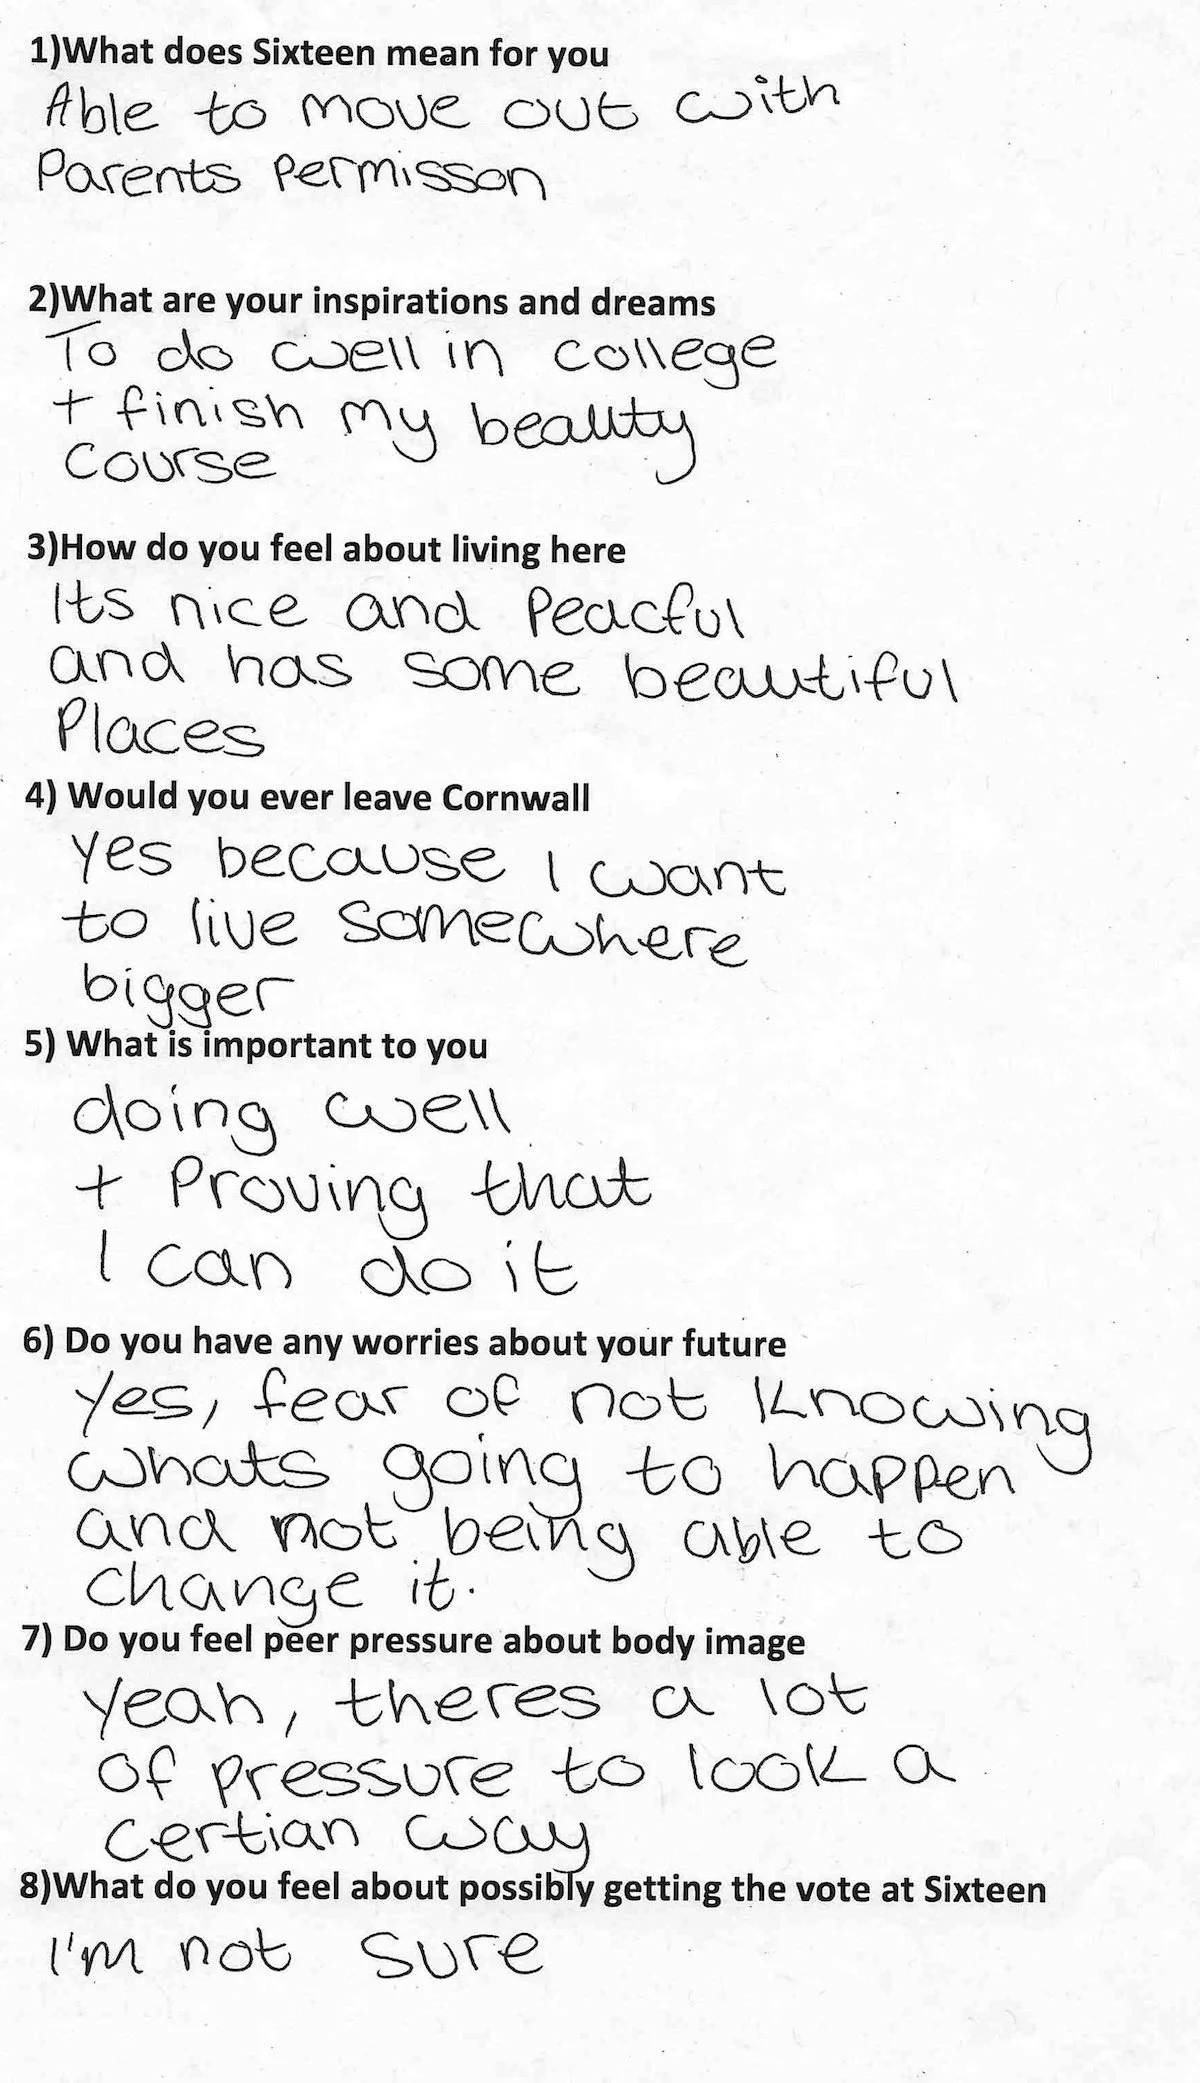 1)What does Sixteen mean for you
Able to move out with
Parents Permisson
2)What are your inspirations and dreams
To do well in college
+ finish my beauty
course
3)How do you feel about living here
Its nice and Peacful
and has some beautiful
Places
4) Would you ever leave Cornwall
Yes because I want
to live somewhere
bigger
5) What is important to you
doing well
+ Proving that
I can do it
6) Do you have any worries about your future
Yes, fear of not knowing
whats going to happen
and not being able to
change it.
7) Do you feel peer pressure about body image
Yeah, theres a lot
of pressure to look a
certian way
8)What do you feel about possibly getting the vote at Sixteen
I'm not sure